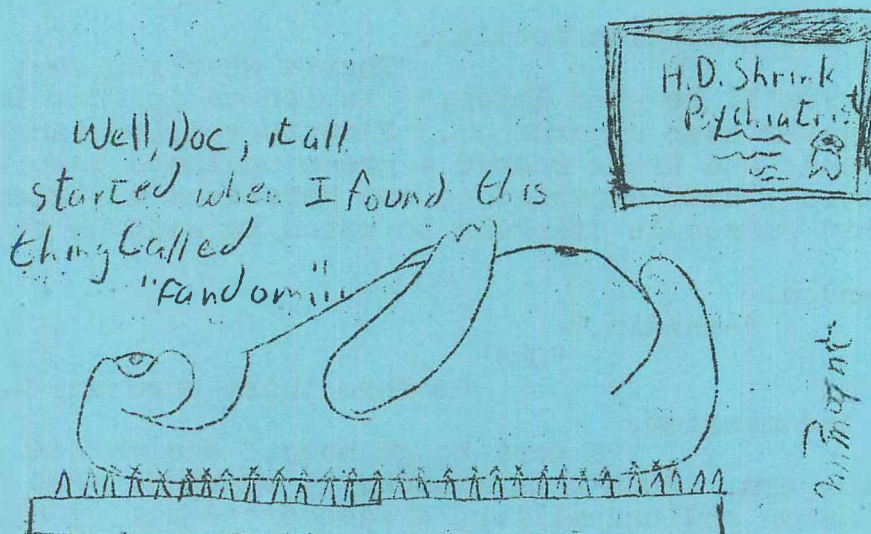 H.D. Shrink
Psychiatrist
Well, Doc, it all
started when I found this
thing Called
"Fandom"